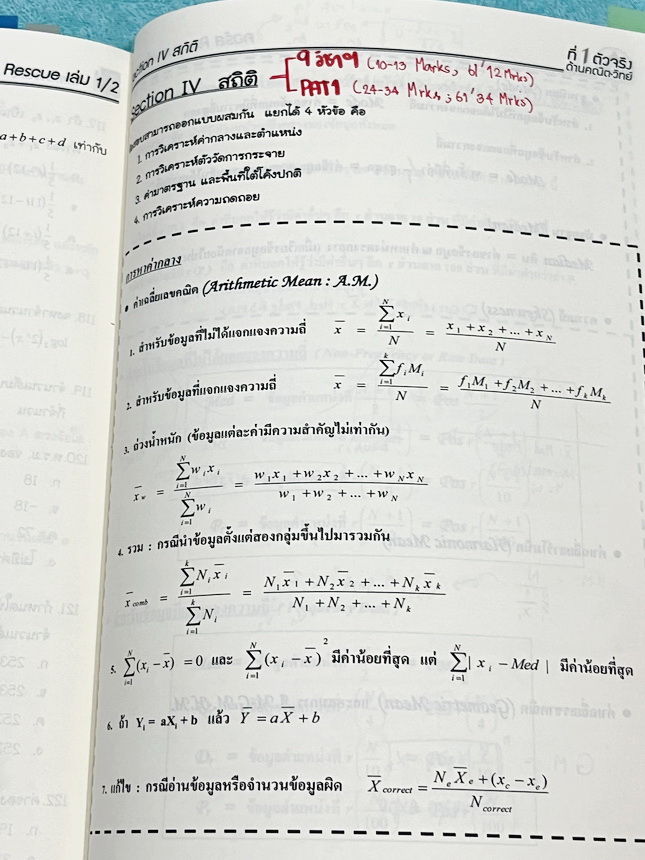 Rescue เล่ม 1/2
a+b+c+d เท่ากับ
Section IV สถิติ
ที่ 1 ตัวจริง
ด้านคณิต-วิทย์
Section IV สถิติ
9 วิชาฯ (10-13 Marks, 61'12 Mrks)
PAT1 (24-34 Mrks, 61'34 Mrks)
สามารถออกแบบผสมกัน แยกได้ 4 หัวข้อ คือ
1. การวิเคราะห์ค่ากลางและตำแหน่ง
2. การวิเคราะห์ตัววัดการกระจาย
3. ค่ามาตรฐาน และพื้นที่ใต้โค้งปกติ
4. การวิเคราะห์ความถดถอย
การหาค่ากลาง
• ค่าเฉลี่ยเลขคณิต (Arithmetic Mean : A.M.)
1. สำหรับข้อมูลที่ไม่ได้แจกแจงความถี่ x̄ = Σ_{i=1}^{N} x_i / N = (x_1 + x_2 + ... + x_N) / N
2. สำหรับข้อมูลที่แจกแจงความถี่ x̄ = Σ_{i=1}^{k} f_i M_i / N = (f_1M_1 + f_2M_2 + ... + f_kM_k) / N
3. ถ่วงน้ำหนัก (ข้อมูลแต่ละค่ามีความสำคัญไม่เท่ากัน)
x̄_w = Σ_{i=1}^{N} w_i x_i / Σ_{i=1}^{N} w_i = (w_1x_1 + w_2x_2 + ... + w_Nx_N) / (w_1 + w_2 + ... + w_N)
4. รวม : กรณีนำข้อมูลตั้งแต่สองกลุ่มขึ้นไปมารวมกัน
x̄_comb = Σ_{i=1}^{k} N_i x̄_i / Σ_{i=1}^{k} N_i = (N_1x̄_1 + N_2x̄_2 + ... + N_kx̄_k) / (N_1 + N_2 + ... + N_k)
5. Σ_{i=1}^{N} (x_i - x̄) = 0 และ Σ_{i=1}^{N} (x_i - x̄)² มีค่าน้อยที่สุด แต่ Σ_{i=1}^{N} | x_i - Med | มีค่าน้อยที่สุด
6. ถ้า Y_i = aX_i + b แล้ว Ȳ = aX̄ + b
7. แก้ไข : กรณีอ่านข้อมูลหรือจำนวนข้อมูลผิด X̄_correct = (N_e X̄_e + (x_c - x_e)) / N_correct